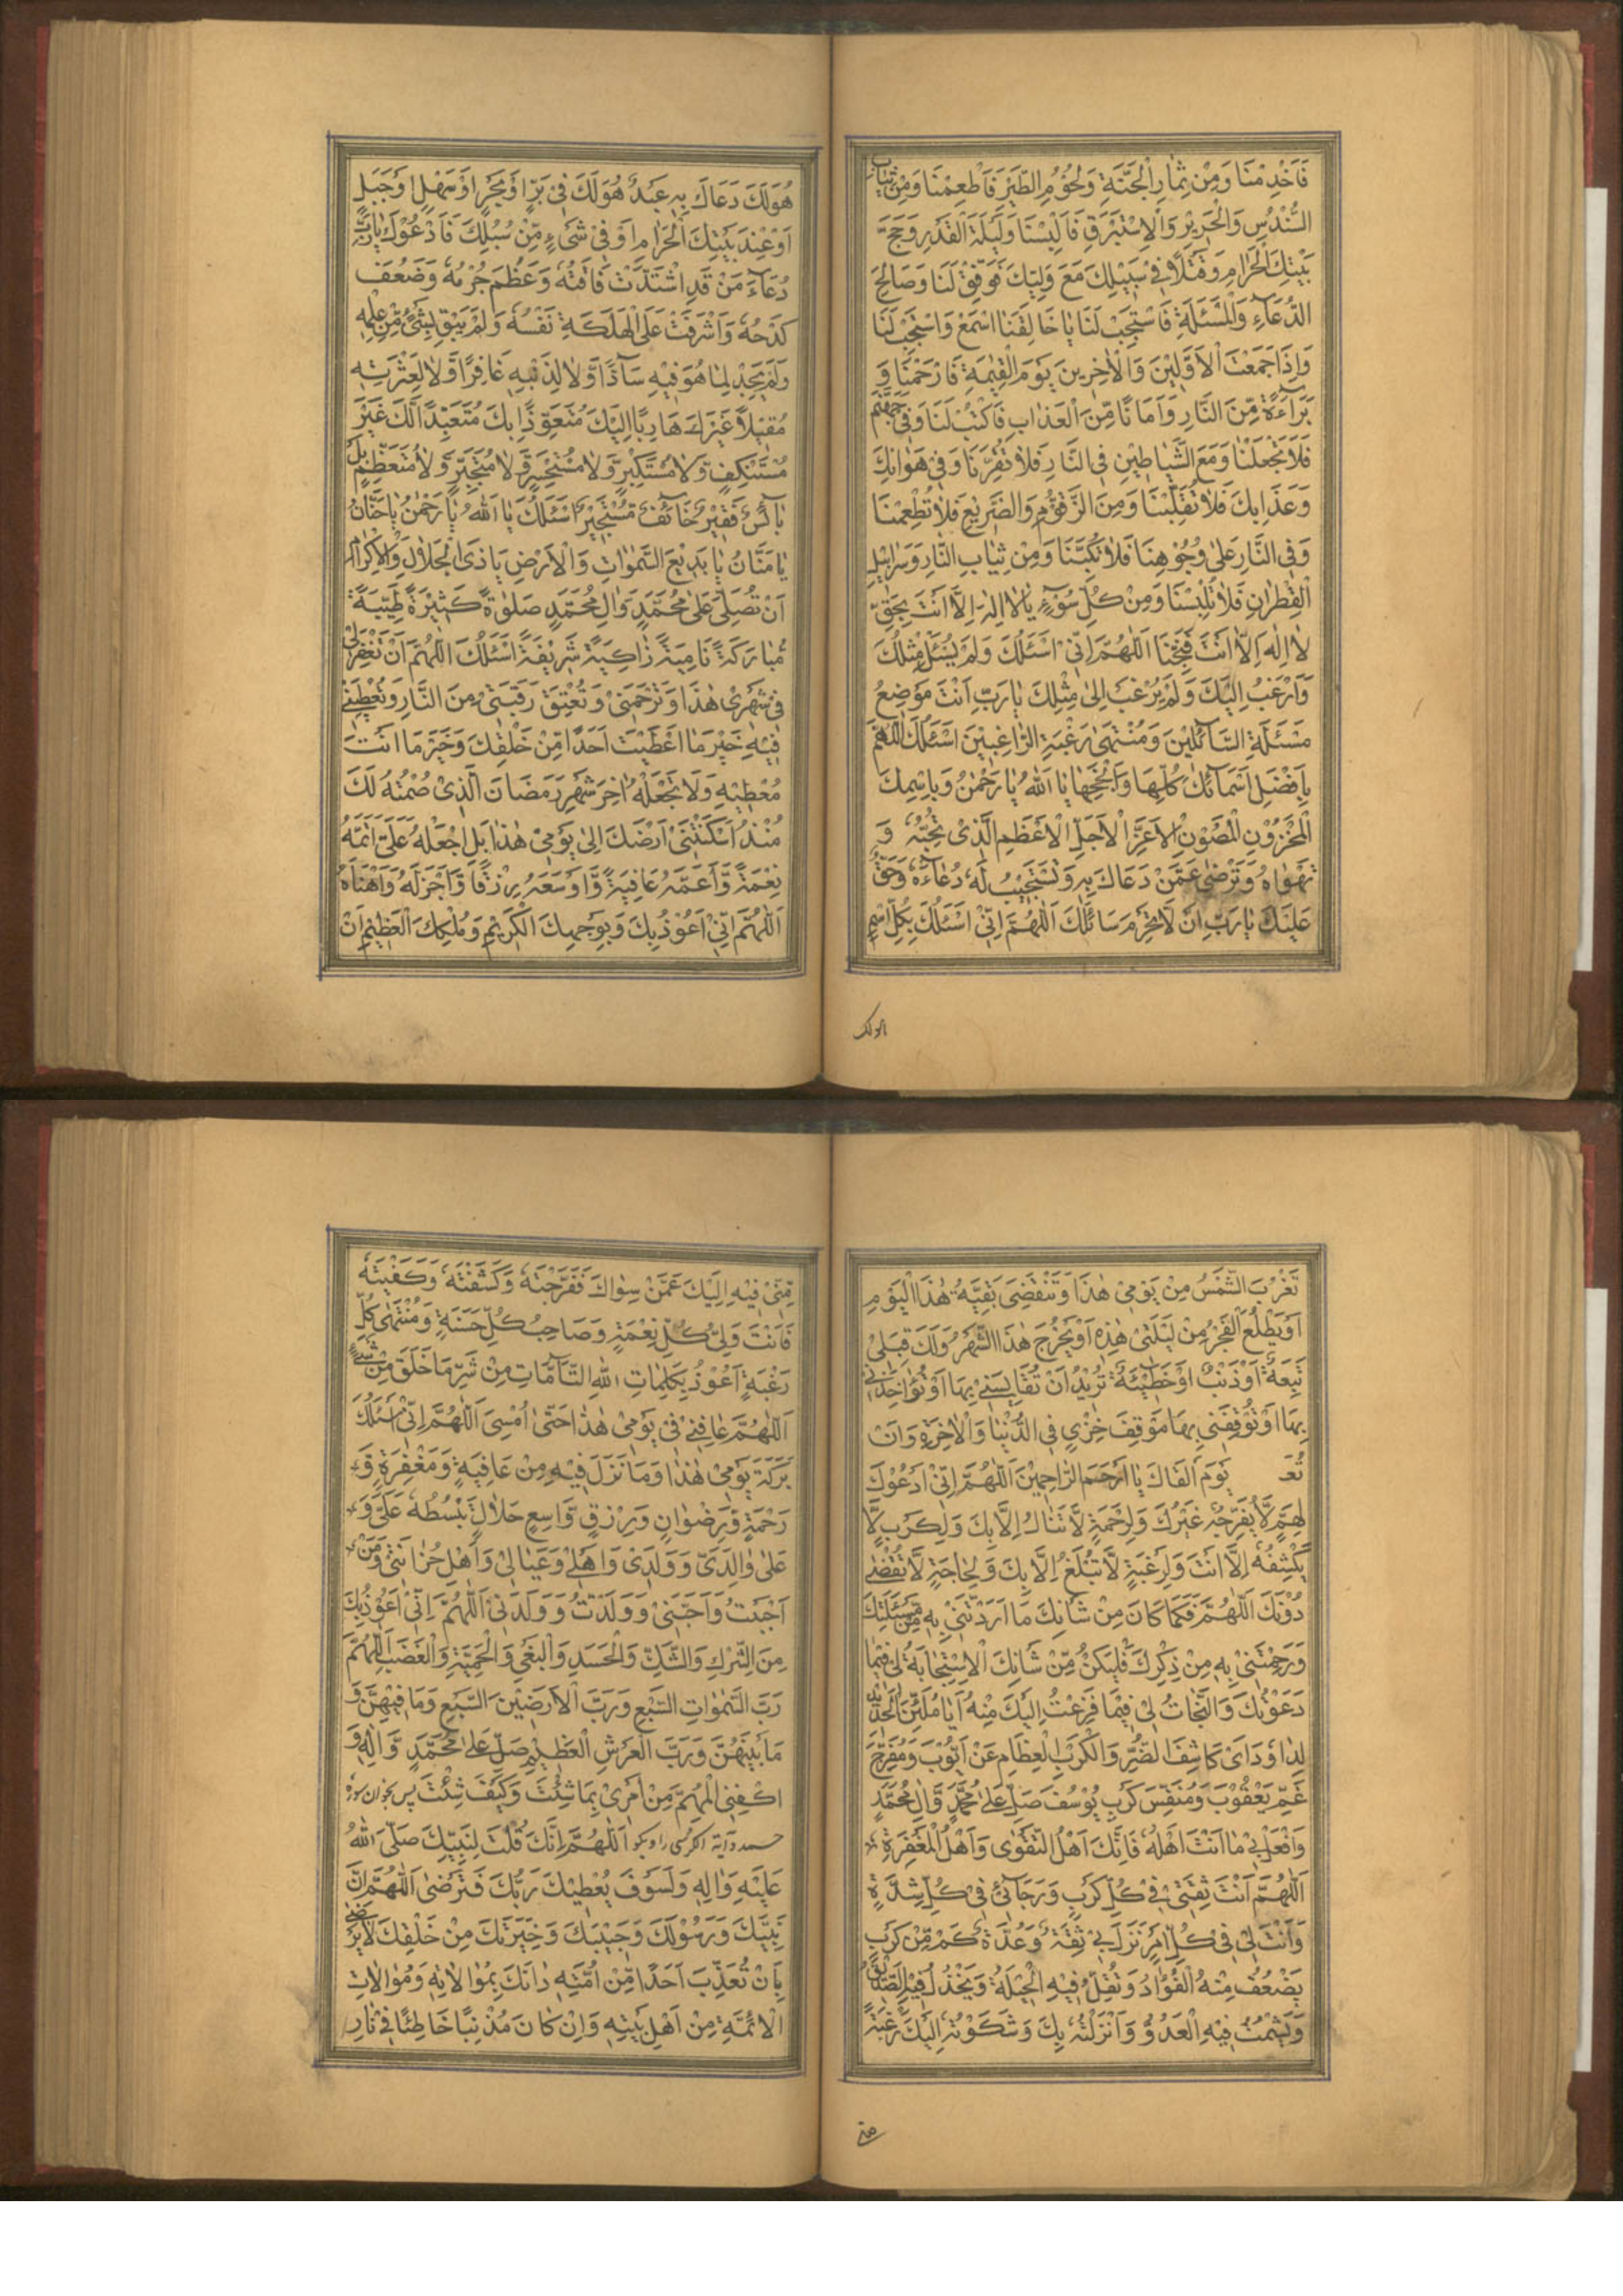 فَاَخْدِمْنَا وَمِنْ ثِمَارِ الْجَنَّةِ وَلُحُوْمِ الطَّيْرِ فَاَطْعِمْنَا وَمِنْ ثِيَابِ
السُّنْدُسِ وَالْحَرِيْرِ وَالْاِسْتَبْرَقِ فَاَلْبِسْنَا وَلَيْلَةَ الْقَدْرِ وَحَجَّ
بَيْتِكَ الْحَرَامِ وَقَتْلًا فِىْ سَبِيْلِكَ مَعَ وَلِيِّكَ فَوَفِّقْ لَنَا وَصَالِحِ
الدُّعَآءِ وَالْمَسْئَلَةِ فَاسْتَجِبْ لَنَا يَا خَالِقَنَا اسْمَعْ وَاسْتَجِبْ لَنَا
وَاِذَا جَمَعْتَ الْاَوَّلِيْنَ وَالْاٰخِرِيْنَ يَوْمَ الْقِيٰمَةِ فَارْحَمْنَا وَ
بَرَآءَةً مِّنَ النَّارِ وَاَمَانًا مِّنَ الْعَذَابِ فَاكْتُبْ لَنَا وَفِىْ جَهَنَّمَ
فَلَا تَجْعَلْنَا وَمَعَ الشَّيَاطِيْنِ فِى النَّارِ فَلَا تَقْرِنَّا وَفِىْ هَوَانِكَ
وَعَذَابِكَ فَلَا تُقَلِّبْنَا وَمِنَ الزَّقُّوْمِ وَالضَّرِيْعِ فَلَا تُطْعِمْنَا
وَفِى النَّارِ عَلٰى وُجُوْهِنَا فَلَا تَكُبَّنَا وَمِنْ ثِيَابِ النَّارِ وَسَرَابِيْلِ
الْقَطِرَانِ فَلَا تُلْبِسْنَا وَمِنْ كُلِّ سُوْٓءٍ يَا لَا اِلٰهَ اِلَّا اَنْتَ بِحَقِّ
لَا اِلٰهَ اِلَّا اَنْتَ فَنَجِّنَا اَللّٰهُمَّ اِنِّىْ اَسْئَلُكَ وَلَمْ يُسْئَلْ مِثْلُكَ
وَاَرْغَبُ اِلَيْكَ وَلَمْ يُرْغَبْ اِلٰى مِثْلِكَ يَا رَبِّ اَنْتَ مَوْضِعُ
مَسْئَلَةِ السَّآئِلِيْنَ وَمُنْتَهٰى رَغْبَةِ الرَّاغِبِيْنَ اَسْئَلُكَ اللّٰهُمَّ
بِاَفْضَلِ اَسْمَآئِكَ كُلِّهَا وَاَنْجَحِهَا يَا اَللّٰهُ يَا رَحْمٰنُ وَبِاسْمِكَ
الْمَخْزُوْنِ الْمَصُوْنِ الْاَعَزِّ الْاَجَلِّ الْاَعْظَمِ الَّذِىْ تُحِبُّهٗ وَ
تَهْوَاهُ وَتَرْضٰى عَمَّنْ دَعَاكَ بِهٖ وَتَسْتَجِيْبُ لَهٗ دُعَآءَهٗ وَحَقٌّ
عَلَيْكَ يَا رَبِّ اَنْ لَّا تَحْرِمَ سَائِلَكَ اَللّٰهُمَّ اِنِّىْ اَسْئَلُكَ بِكُلِّ اسْمٍ
هُوَ لَكَ
هُوَ لَكَ دَعَاكَ بِهٖ عَبْدٌ هُوَ لَكَ فِىْ بَرٍّ اَوْ بَحْرٍ اَوْ سَهْلٍ اَوْ جَبَلٍ
اَوْ عِنْدَ بَيْتِكَ الْحَرَامِ اَوْ فِىْ شَىْءٍ مِّنْ سُبُلِكَ فَاَدْعُوْكَ يَا رَبِّ
دُعَآءَ مَنْ قَدِ اشْتَدَّتْ فَاقَتُهٗ وَعَظُمَ جُرْمُهٗ وَضَعُفَ
كَدْحُهٗ وَاَشْرَفَتْ عَلَى الْهَلَكَةِ نَفْسُهٗ وَلَمْ يَثِقْ بِشَىْءٍ مِّنْ عَمَلِهٖ
وَلَمْ يَجِدْ لِمَا هُوَ فِيْهِ سَآدًّا وَّلَا لِذَنْبِهٖ غَافِرًا وَّلَا لِعَثْرَتِهٖ
مُقِيْلًا غَيْرَكَ هَارِبًا اِلَيْكَ مُتَعَوِّذًا بِكَ مُتَعَبِّدًا لَّكَ غَيْرَ
مُسْتَنْكِفٍ وَّلَا مُسْتَكْبِرٍ وَّلَا مُسْتَحْسِرٍ وَّلَا مُتَجَبِّرٍ وَّلَا مُتَعَظِّمٍ بَلْ
بَآئِسٌ فَقِيْرٌ خَآئِفٌ مُّسْتَجِيْرٌ اَسْئَلُكَ يَا اَللّٰهُ يَا رَحْمٰنُ يَا حَنَّانُ
يَا مَنَّانُ يَا بَدِيْعَ السَّمٰوَاتِ وَالْاَرْضِ يَا ذَى الْجَلَالِ وَالْاِكْرَامِ
اَنْ تُصَلِّىَ عَلٰى مُحَمَّدٍ وَّاٰلِ مُحَمَّدٍ صَلٰوةً كَثِيْرَةً طَيِّبَةً
مُّبَارَكَةً نَامِيَةً زَاكِيَةً شَرِيْفَةً اَسْئَلُكَ اللّٰهُمَّ اَنْ تَغْفِرَ لِىْ
فِىْ شَهْرِىْ هٰذَا وَتَرْحَمَنِىْ وَتُعْتِقَ رَقَبَتِىْ مِنَ النَّارِ وَتُعْطِيَنِىْ
فِيْهِ خَيْرَ مَا اَعْطَيْتَ اَحَدًا مِّنْ خَلْقِكَ وَخَيْرَ مَا اَنْتَ
مُعْطِيْهِ وَلَا تَجْعَلْهُ اٰخِرَ شَهْرِ رَمَضَانَ الَّذِىْ صُمْتُهٗ لَكَ
مُنْذُ اَسْكَنْتَنِىْ اَرْضَكَ اِلٰى يَوْمِىْ هٰذَا بَلِ اجْعَلْهُ عَلَىَّ اَتَمَّهٗ
نِعْمَةً وَّاَعَمَّهٗ عَافِيَةً وَّاَوْسَعَهٗ رِزْقًا وَّاَجْزَلَهٗ وَاَهْنَاَهٗ
اَللّٰهُمَّ اِنِّىْ اَعُوْذُ بِكَ وَبِوَجْهِكَ الْكَرِيْمِ وَمُلْكِكَ الْعَظِيْمِ اَنْ
تَغْرُبَ الشَّمْسُ مِنْ يَوْمِىْ هٰذَا وَتَنْقَضِىَ بَقِيَّةُ هٰذَا الْيَوْمِ
اَوْ يَطْلُعَ الْفَجْرُ مِنْ لَيْلَتِىْ هٰذِهٖ اَوْ يَخْرُجَ هٰذَا الشَّهْرُ وَلَكَ قِبَلِىْ
تَبِعَةٌ اَوْ ذَنْبٌ اَوْ خَطِيْئَةٌ تُرِيْدُ اَنْ تُقَايِسَنِىْ بِهَا اَوْ تُؤَاخِذَنِىْ
بِهَا اَوْ تُوْقِفَنِىْ بِهَا مَوْقِفَ خِزْىٍ فِى الدُّنْيَا وَالْاٰخِرَةِ وَاَنْ
تُعَـ يَوْمَ اَلْقَاكَ يَا اَرْحَمَ الرَّاحِمِيْنَ اَللّٰهُمَّ اِنِّىْ اَدْعُوْكَ
لِهَمٍّ لَّا يُفَرِّجُهٗ غَيْرُكَ وَلِرَحْمَةٍ لَّا تُنَالُ اِلَّا بِكَ وَلِكَرْبٍ لَّا
يَكْشِفُهٗ اِلَّا اَنْتَ وَلِرَغْبَةٍ لَّا تُبْلَغُ اِلَّا بِكَ وَلِحَاجَةٍ لَّا تُقْضٰى
دُوْنَكَ اَللّٰهُمَّ فَكَمَا كَانَ مِنْ شَانِكَ مَا اَرَدْتَنِىْ بِهٖ مِنْ مَّسْئَلَتِكَ
وَرَحِمْتَنِىْ بِهٖ مِنْ ذِكْرِكَ فَلْيَكُنْ مِّنْ شَانِكَ الْاِسْتِجَابَةُ لِىْ فِيْمَا
دَعَوْتُكَ وَالنَّجَاتُ لِىْ فِيْمَا فَزِعْتُ اِلَيْكَ مِنْهُ اَيَا مُلَيِّنَ الْحَدِيْدِ
لِدَاوٗدَ اَىْ كَاشِفَ الضُّرِّ وَالْكُرَبِ الْعِظَامِ عَنْ اَيُّوْبَ وَمُفَرِّجَ
غَمِّ يَعْقُوْبَ وَمُنَفِّسَ كَرْبِ يُوْسُفَ صَلِّ عَلٰى مُحَمَّدٍ وَّاٰلِ مُحَمَّدٍ
وَافْعَلْ بِىْ مَا اَنْتَ اَهْلُهٗ فَاِنَّكَ اَهْلُ التَّقْوٰى وَاَهْلُ الْمَغْفِرَةِ
اَللّٰهُمَّ اَنْتَ ثِقَتِىْ فِىْ كُلِّ كَرْبٍ وَرَجَآئِىْ فِىْ كُلِّ شِدَّةٍ
وَاَنْتَ لِىْ فِىْ كُلِّ اَمْرٍ نَزَلَ بِىْ ثِقَةٌ وَعُدَّةٌ كَمْ مِّنْ كَرْبٍ
يَضْعُفُ مِنْهُ الْفُؤَادُ وَتَقِلُّ فِيْهِ الْحِيْلَةُ وَيَخْذُلُ فِيْهِ الصَّدِيْقُ
وَيَشْمَتُ فِيْهِ الْعَدُوُّ وَاَنْزَلْتُهٗ بِكَ وَشَكَوْتُهٗ اِلَيْكَ رَغْبَةً
مِّنِّىْ فِيْهِ اِلَيْكَ عَمَّنْ سِوَاكَ فَفَرَّجْتَهٗ وَكَشَفْتَهٗ وَكَفَيْتَهٗ
فَاَنْتَ وَلِىُّ كُلِّ نِعْمَةٍ وَصَاحِبُ كُلِّ حَسَنَةٍ وَمُنْتَهٰى كُلِّ
رَغْبَةٍ اَعُوْذُ بِكَلِمَاتِ اللّٰهِ التَّآمَّاتِ مِنْ شَرِّ مَا خَلَقَ مِنْ شَىْءٍ
اَللّٰهُمَّ عَافِنِىْ فِىْ يَوْمِىْ هٰذَا حَتّٰى اُمْسِىَ اَللّٰهُمَّ اِنِّىْ اَسْئَلُكَ
بَرَكَةَ يَوْمِىْ هٰذَا وَمَا نَزَلَ فِيْهِ مِنْ عَافِيَةٍ وَمَغْفِرَةٍ وَّ
رَحْمَةٍ وَّرِضْوَانٍ وَرِزْقٍ وَّاسِعٍ حَلَالٍ تَبْسُطُهٗ عَلَىَّ وَ
عَلٰى وَالِدَىَّ وَوَلَدِىْ وَاَهْلِىْ وَعَيَالِىْ وَاَهْلِ حُزَانَتِىْ وَمَنْ
اَحْبَبْتُ وَاَحَبَّنِىْ وَوَلَدْتُ وَوَلَدَنِىْ اَللّٰهُمَّ اِنِّىْ اَعُوْذُ بِكَ
مِنَ الشِّرْكِ وَالشَّكِّ وَالْحَسَدِ وَالْبَغْىِ وَالْحَمِيَّةِ وَالْغَضَبِ اَللّٰهُمَّ
رَبَّ السَّمٰوَاتِ السَّبْعِ وَرَبَّ الْاَرَضِيْنَ السَّبْعِ وَمَا فِيْهِنَّ وَ
مَا بَيْنَهُنَّ وَرَبَّ الْعَرْشِ الْعَظِيْمِ صَلِّ عَلٰى مُحَمَّدٍ وَّاٰلِهٖ وَ
اكْفِنِى الْمُهِمَّ مِنْ اَمْرِىْ بِمَا شِئْتَ وَكَيْفَ شِئْتَ پس بخوان سورهٔ
حمد و آیة الکرسی را و بگو اَللّٰهُمَّ اِنَّكَ قُلْتَ لِنَبِيِّكَ صَلَّى اللّٰهُ
عَلَيْهِ وَاٰلِهٖ وَلَسَوْفَ يُعْطِيْكَ رَبُّكَ فَتَرْضٰى اَللّٰهُمَّ اِنَّ
نَبِيَّكَ وَرَسُوْلَكَ وَحَبِيْبَكَ وَخِيَرَتَكَ مِنْ خَلْقِكَ لَا يَرْضٰى
بِاَنْ تُعَذِّبَ اَحَدًا مِّنْ اُمَّتِهٖ دَانَكَ بِمُوَالَاتِهٖ وَمُوَالَاتِ
الْاَئِمَّةِ مِنْ اَهْلِ بَيْتِهٖ وَاِنْ كَانَ مُذْنِبًا خَاطِئًا فِىْ نَارِ